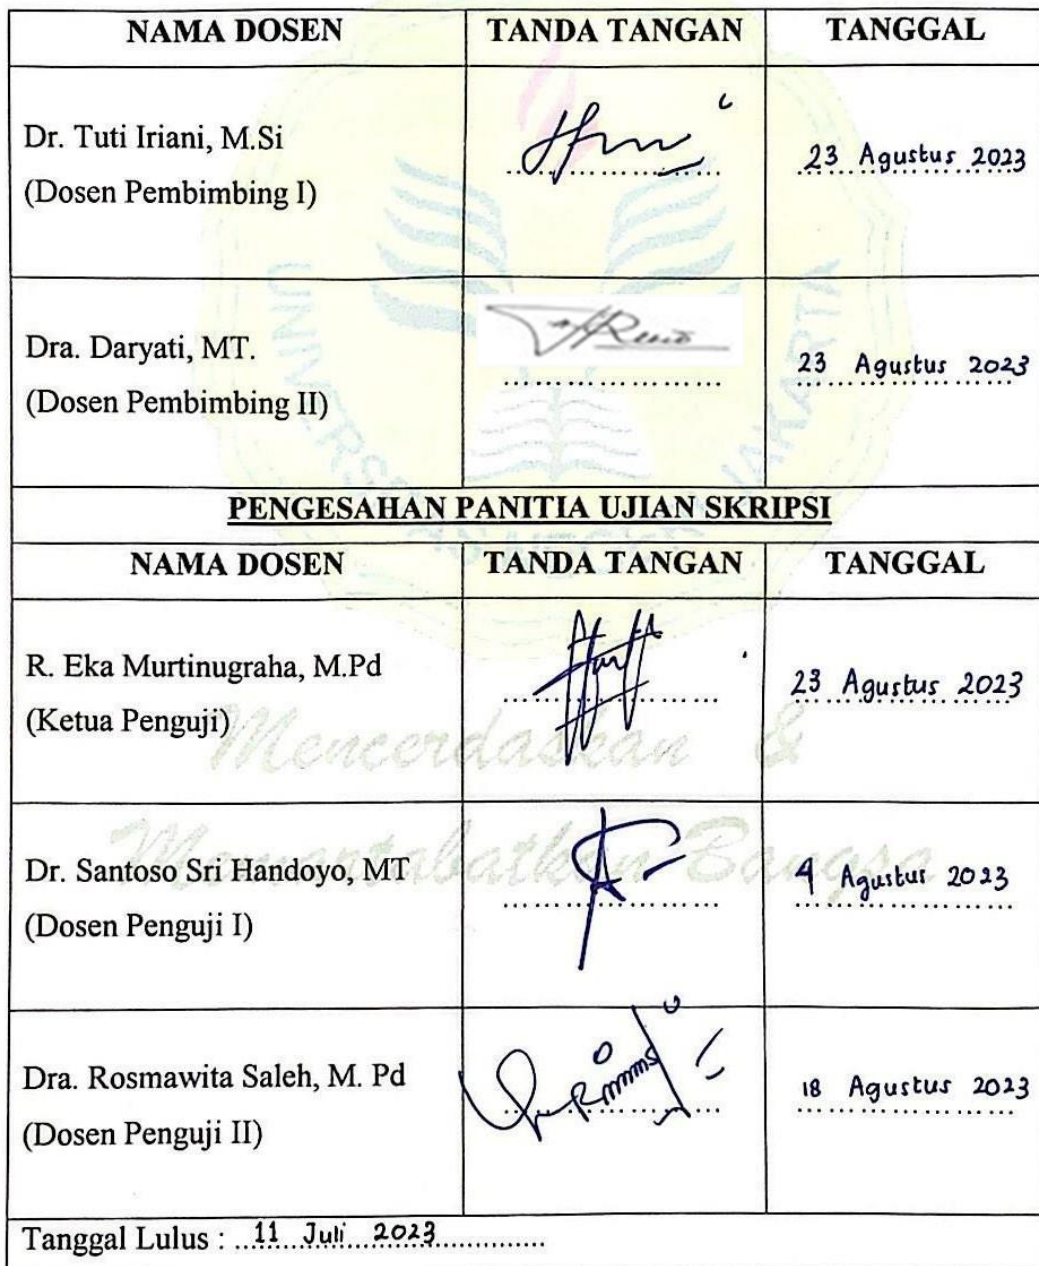 NAMA DOSEN TANDA TANGAN TANGGAL
Dr. Tuti Iriani, M.Si
(Dosen Pembimbing I)
23 Agustus 2023
Dra. Daryati, MT.
(Dosen Pembimbing II)
23 Agustus 2023
PENGESAHAN PANITIA UJIAN SKRIPSI
NAMA DOSEN TANDA TANGAN TANGGAL
R. Eka Murtinugraha, M.Pd
(Ketua Penguji)
23 Agustus 2023
Mencerdaskan &
Dr. Santoso Sri Handoyo, MT
(Dosen Penguji I)
4 Agustus 2023
Memartabatkan Bangsa
Dra. Rosmawita Saleh, M. Pd
(Dosen Penguji II)
18 Agustus 2023
Tanggal Lulus : 11 Juli 2023
UNIVERSITAS NEGERI JAKARTA